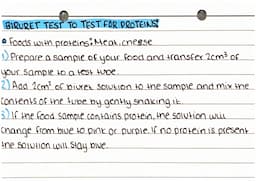 BIRURET TEST TO TEST FOR PROTEINS:
• Foods with proteins: Meat, cheese
1) Prepare a sample of your food and transfer 2cm³ of
your sample to a test tube.
2) Add 2cm³ of biuret solution to the sample and mix the
contents of the tube by gently shaking it.
3) If the food sample contains protein, the solution will
change from blue to pink or purple. If no protein is present
the solution will stay blue.